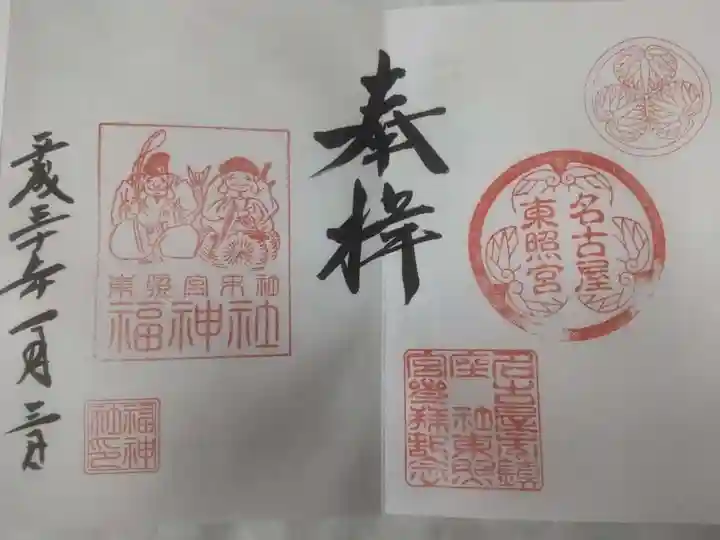 奉拝
名古屋
東照宮
名古屋市鎮
座 社東照
宮参拝記念
東照宮末社
福神社
平成三十年一月三日
福神
社印